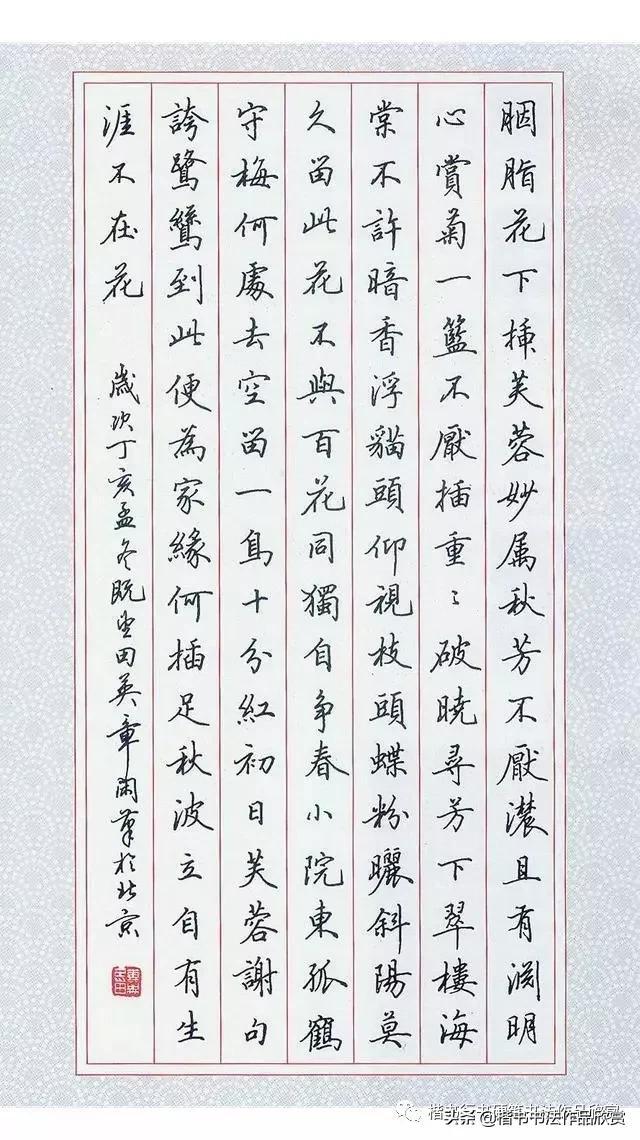 胭脂花下揷芙蓉妙属秋芳不厭濃且有渕明
心賞菊一籃不厭插重〻破曉尋芳下翠樓海
棠不許暗香浮貓頭仰視枝頭蝶粉曬斜陽莫
久畄此花不與百花同獨自争春小院東孤鶴
守梅何處去空畄一鳥十分紅初日芙蓉謝句
誇鷺鷥到此便為家緣何插足秋波立自有生
涯不在花
歲次丁亥孟冬既望田英章閑筆於北京
头条@楷书书法作品欣赏